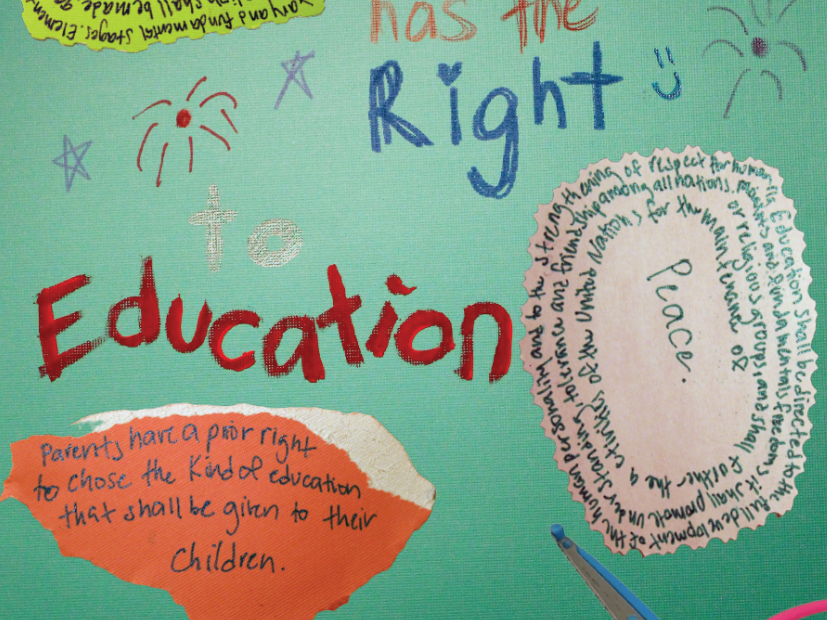 and fundamental stages.
shall be made
has the
Right
to
Education
Education shall be directed to the full development of the human personality and to the strengthening of respect for human
and fundamentals freedoms it shall promote understanding tolerance and friendship among all nations,
or religious groups and shall further the activities of the United Nations for the maintenance of
Peace.
Parents have a prior right
to chose the Kind of education
that shall be given to their
children.